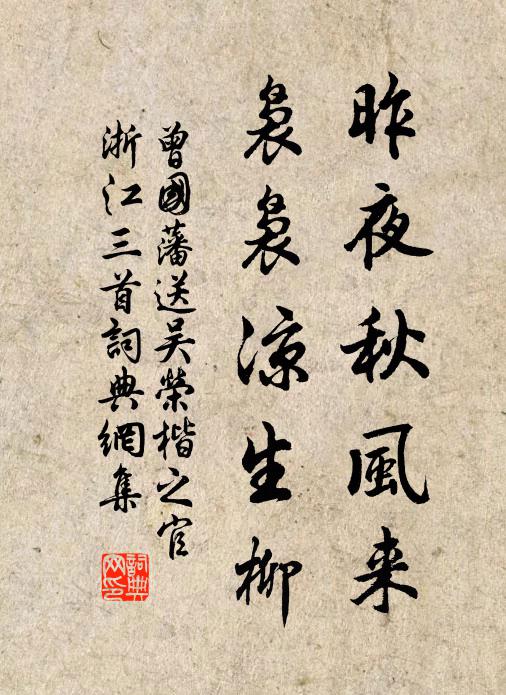 昨夜秋風来
袅袅凉生柳
曾國藩送吴榮楷之官
浙江三首詞典網集
詞典
网印